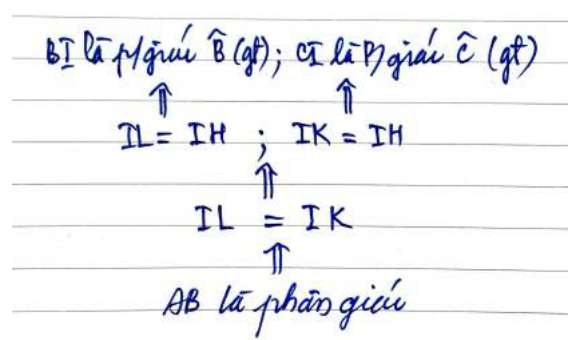 BI là p/giác B̂ (gt); CI là p/giác Ĉ (gt)
⇑ ⇑
IL = IH ; IK = IH
⇑
IL = IK
⇑
AB là phân giác